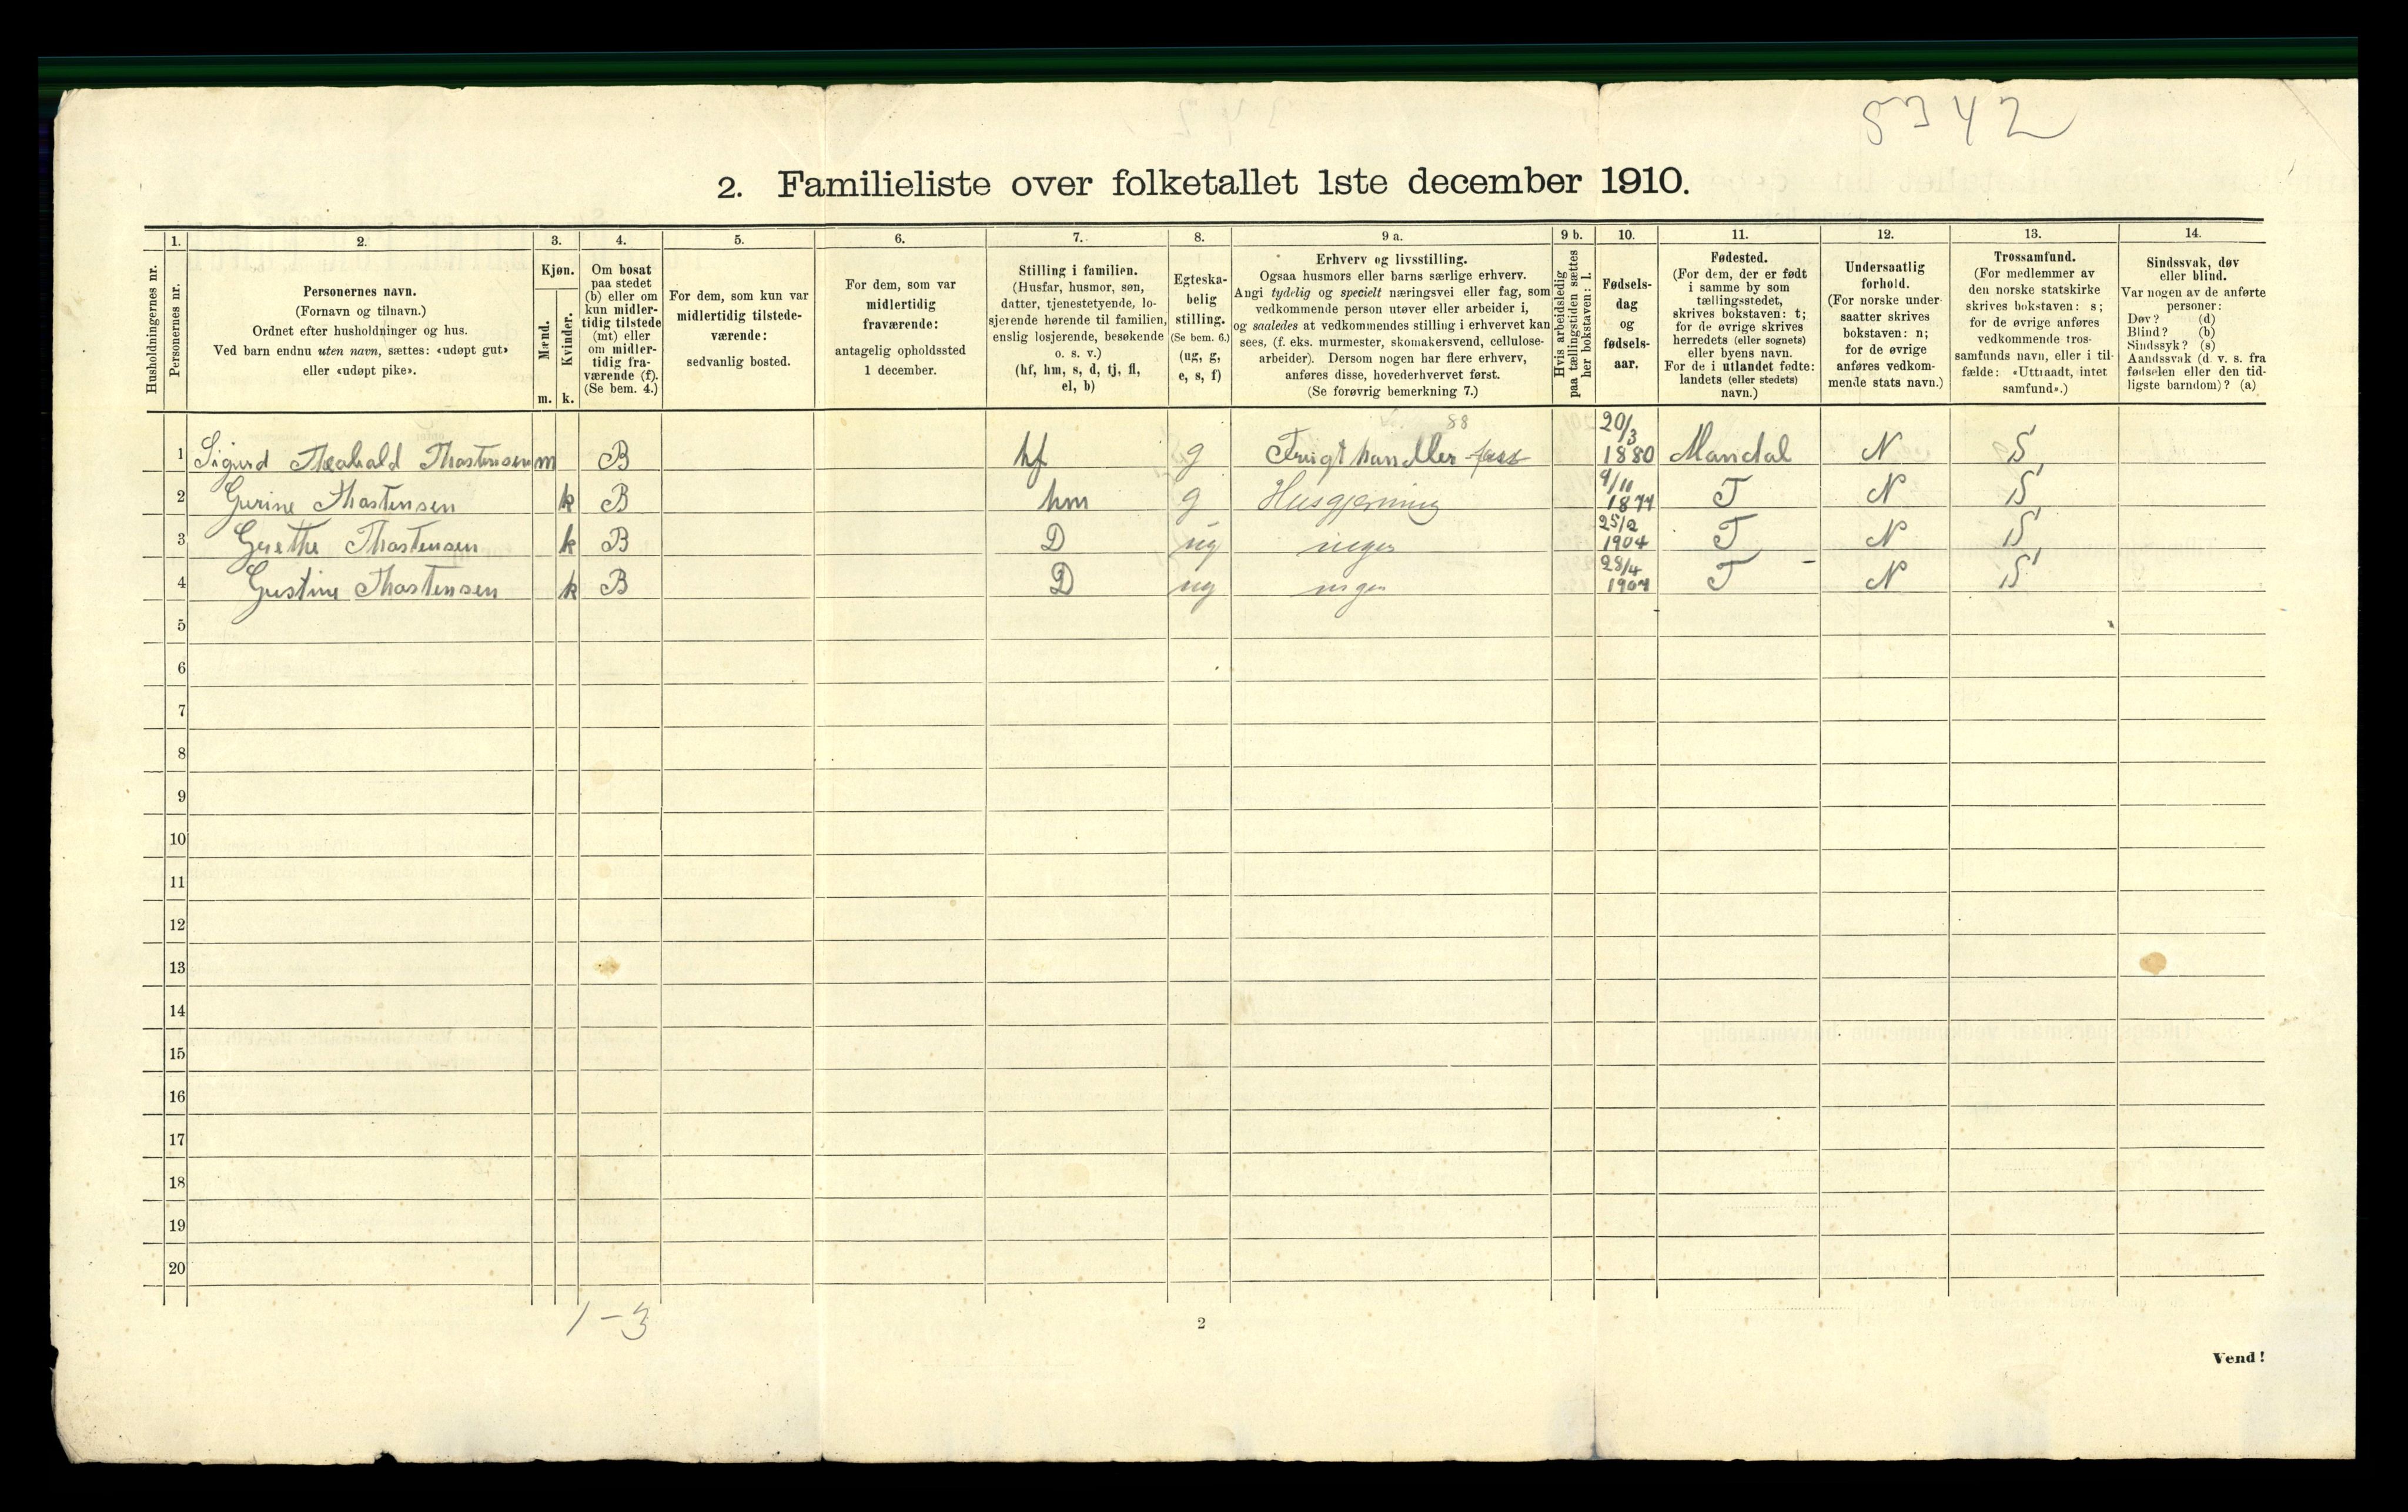 5342
2. Familieliste over folketallet 1ste december 1910.
1. 2. 3. 4. 5. 6. 7. 8. 9 a. 9 b. 10. 11. 12. 13. 14.
Husholdningernes nr.
Personernes nr.
Personernes navn.
(Fornavn og tilnavn.)
Ordnet efter husholdninger og hus.
Ved barn endnu uten navn, sættes: «udøpt gut»
eller «udøpt pike».
Kjøn.
Mænd.
Kvinder.
m. k.
Om bosat
paa stedet
(b) eller om
kun midler-
tidig tilstede
(mt) eller
om midler-
tidig fra-
værende (f).
(Se bem. 4.)
For dem, som kun var
midlertidig tilstede-
værende:
sedvanlig bosted.
For dem, som var
midlertidig
fraværende:
antagelig opholdssted
1 december.
Stilling i familien.
(Husfar, husmor, søn,
datter, tjenestetyende, lo-
sjerende hørende til familien,
enslig losjerende, besøkende
o. s. v.)
(hf, hm, s, d, tj, fl,
el, b)
Egteska-
belig
stilling.
(Se bem. 6.)
(ug, g,
e, s, f)
Erhverv og livsstilling.
Ogsaa husmors eller barns særlige erhverv.
Angi tydelig og specielt næringsvei eller fag, som
vedkommende person utøver eller arbeider i,
og saaledes at vedkommendes stilling i erhvervet kan
sees, (f. eks. murmester, skomakersvend, cellulose-
arbeider). Dersom nogen har flere erhverv,
anføres disse, hovederhvervet først.
(Se forøvrig bemerkning 7.)
Hvis arbeidsledig
paa tællingstiden sættes
her bokstaven: l.
Fødsels-
dag
og
fødsels-
aar.
Fødested.
(For dem, der er født
i samme by som
tællingsstedet,
skrives bokstaven: t;
for de øvrige skrives
herredets (eller sognets)
eller byens navn.
For de i utlandet fødte:
landets (eller stedets)
navn.)
Undersaatlig
forhold.
(For norske under-
saatter skrives
bokstaven: n;
for de øvrige
anføres vedkom-
mende stats navn.)
Trossamfund.
(For medlemmer av
den norske statskirke
skrives bokstaven: s;
for de øvrige anføres
vedkommende tros-
samfunds navn, eller i til-
fælde: «Uttraadt, intet
samfund».)
Sindssvak, døv
eller blind.
Var nogen av de anførte
personer:
Døv? (d)
Blind? (b)
Sindssyk? (s)
Aandssvak (d. v. s. fra
fødselen eller den tid-
ligste barndom)? (a)
88
1 Sigurd Theobald Thostensen m B hf g Frugthandler 20/3 1880 Mandal N S
2 Gurine Thostensen k B hm g Husgjerning 9/11 1874 T N S
3 Grethe Thostensen k B D ug ingen 25/2 1904 T N S
4 Gustine Thostensen k B D ug ingen 28/4 1907 T N S
5
6
7
8
9
10
11
12
13
14
15
16
17
18
19
20
1-3
2
Vend!